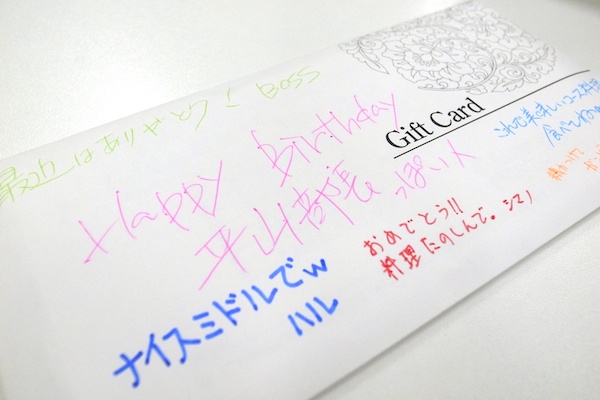 最近はありがとう！ BOSS
Happy Birthday
平山部長っぽい人
Gift Card
これで美味しいコース料理
食べてね
おめでとう!!
料理たのしんで。シマノ
ナイスミドルでw
ハル